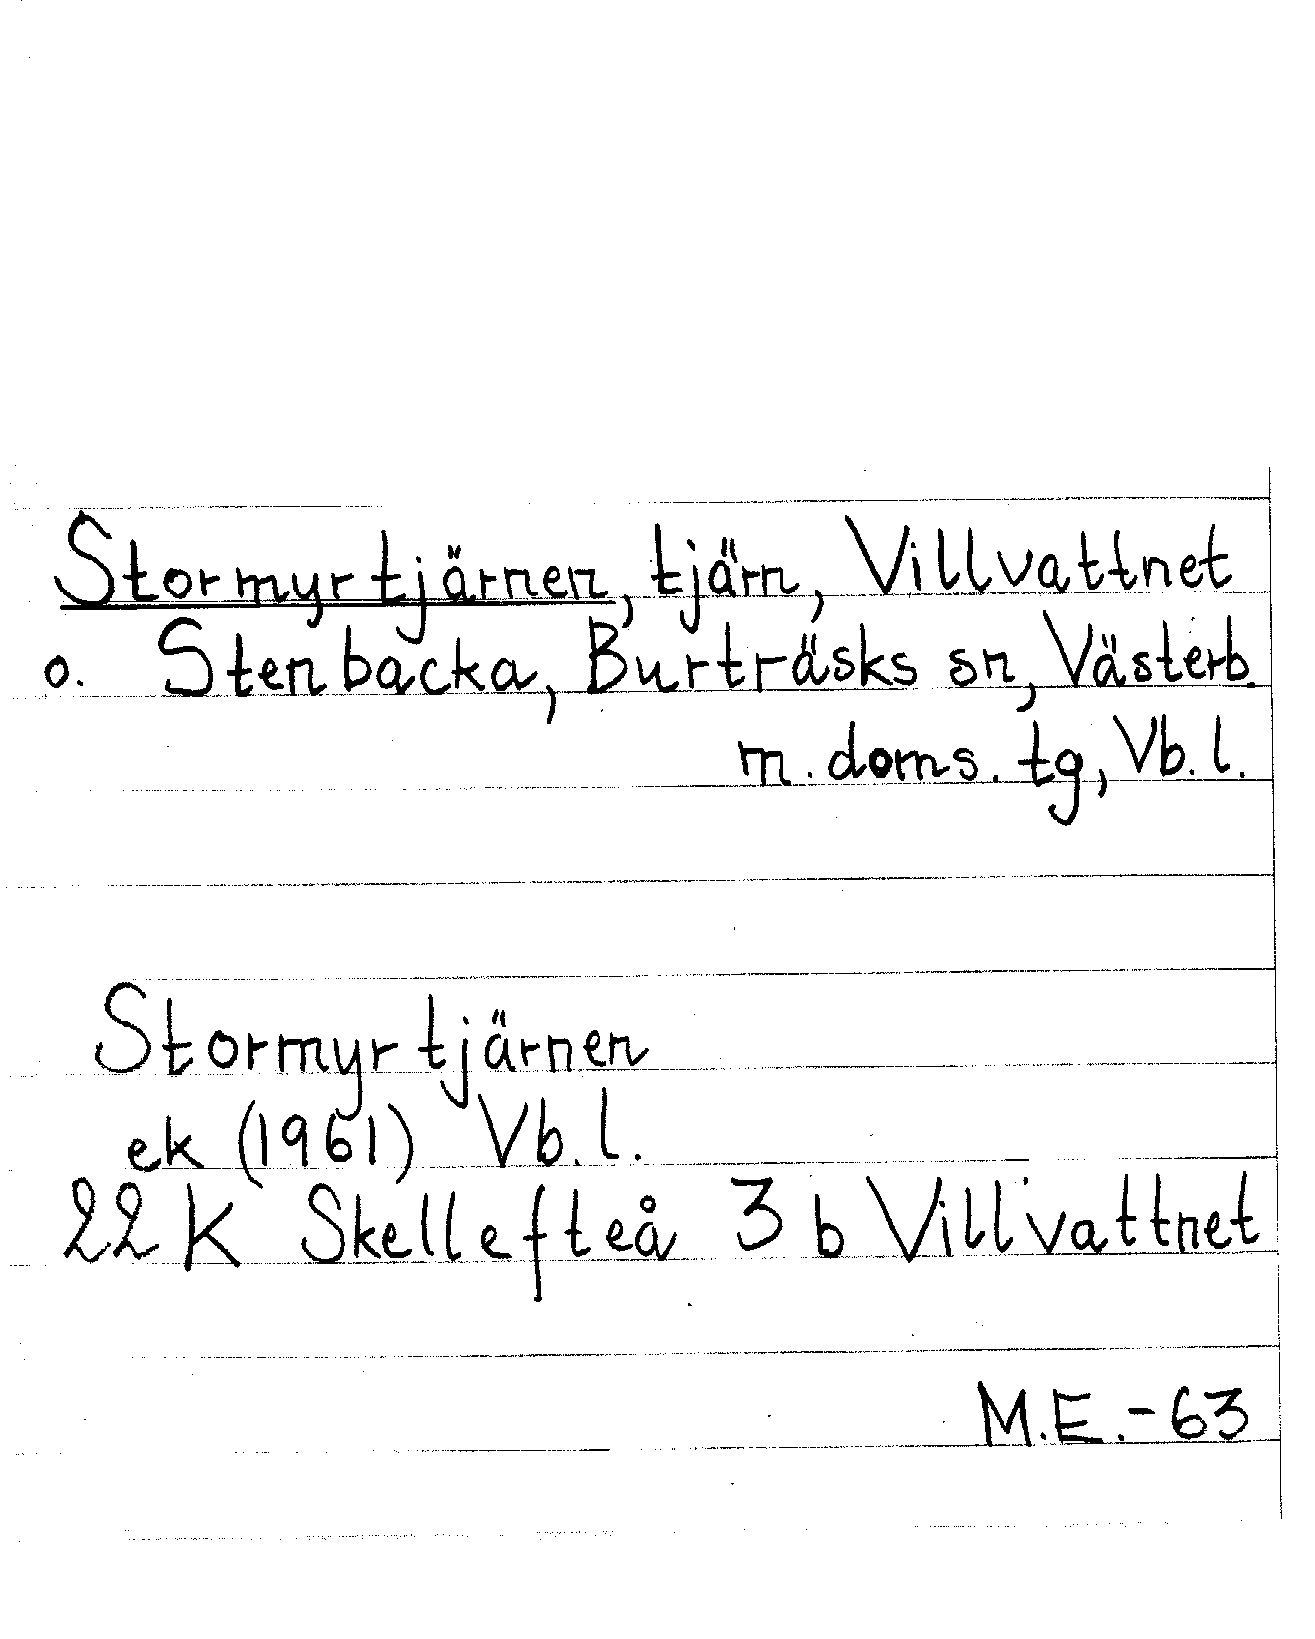 Stormyrtjärnen, tjärn, Villvattnet
o. Stenbacka, Burträsks sn, Västerb.
m. doms. tg, Vb. l.
Stormyrtjärnen
ek (1961) Vb. l.
22 K Skellefteå 3 b Villvattnet
M.E. - 63